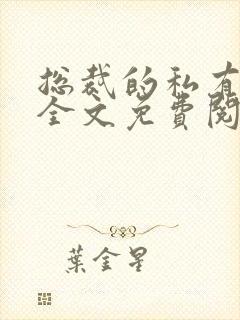 总裁的私有
全文免費閱
葉金星